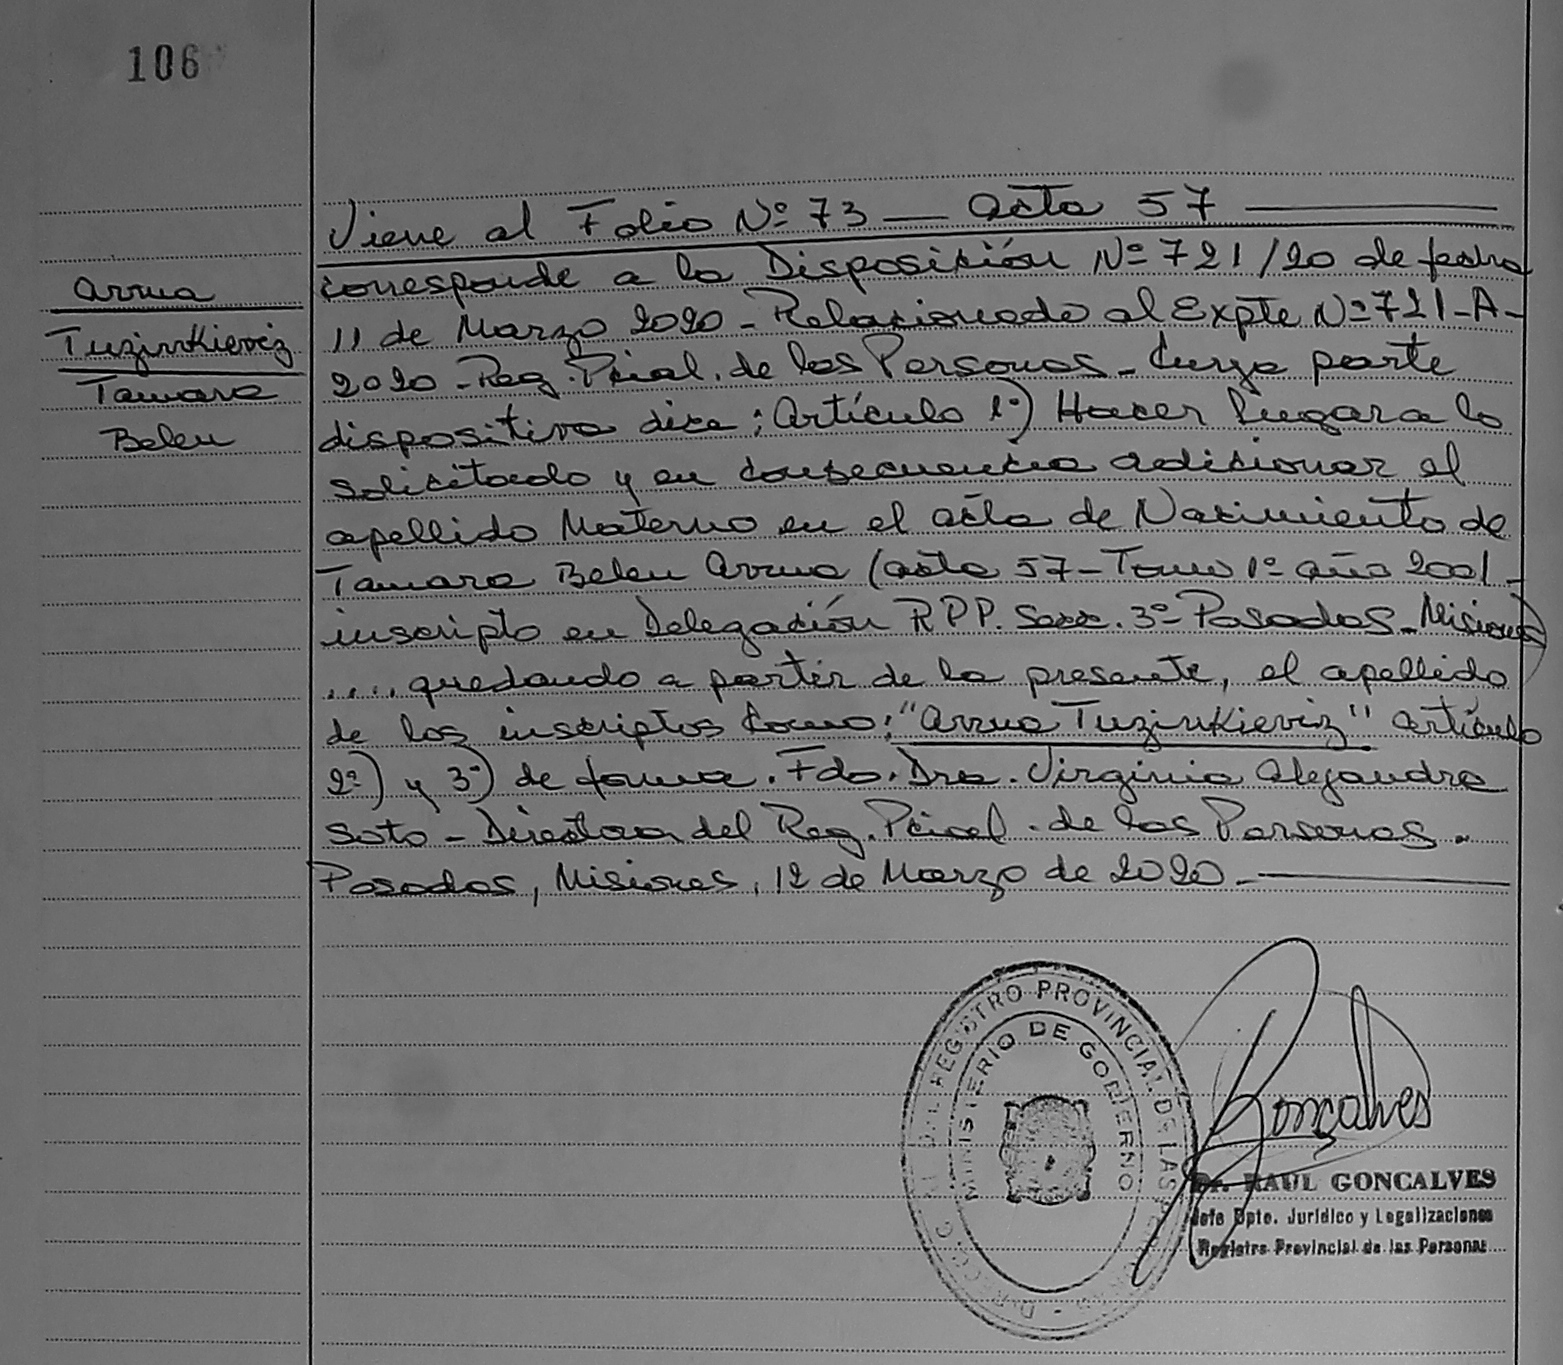 106
Viene al Folio Nº 73 — Acta 57
Arrua
Tuzinkieviz
Tamara
Belen
corresponde a la Disposición Nº 721/20 de fecha
11 de Marzo 2020 - Relacionado al Expte Nº 721-A-
2020 - Reg. Pcial. de las Personas - Cuya parte
dispositiva dice: Artículo 1º) Hacer lugar a lo
solicitado y en consecuencia adicionar el
apellido Materno en el acta de Nacimiento de
Tamara Belen Arrua (acta 57 - Tomo 1º año 2001 -
inscripto en Delegación RPP. Secc. 3º Posadas - Misiones)
.... quedando a partir de la presente, el apellido
de los inscriptos como: "Arrua Tuzinkieviz" artículo
2º) y 3º) de forma. Fdo. Dra. Virginia Alejandra
Soto - Directora del Reg. Pcial. de las Personas.
Posadas, Misiones, 12 de Marzo de 2020.
REGISTRO PROVINCIAL DE LAS
MINISTERIO DE GOBIERNO
Goncalves
Dr. RAUL GONCALVES
Jefe Dpto. Jurídico y Legalizaciones
Registro Provincial de las Personas